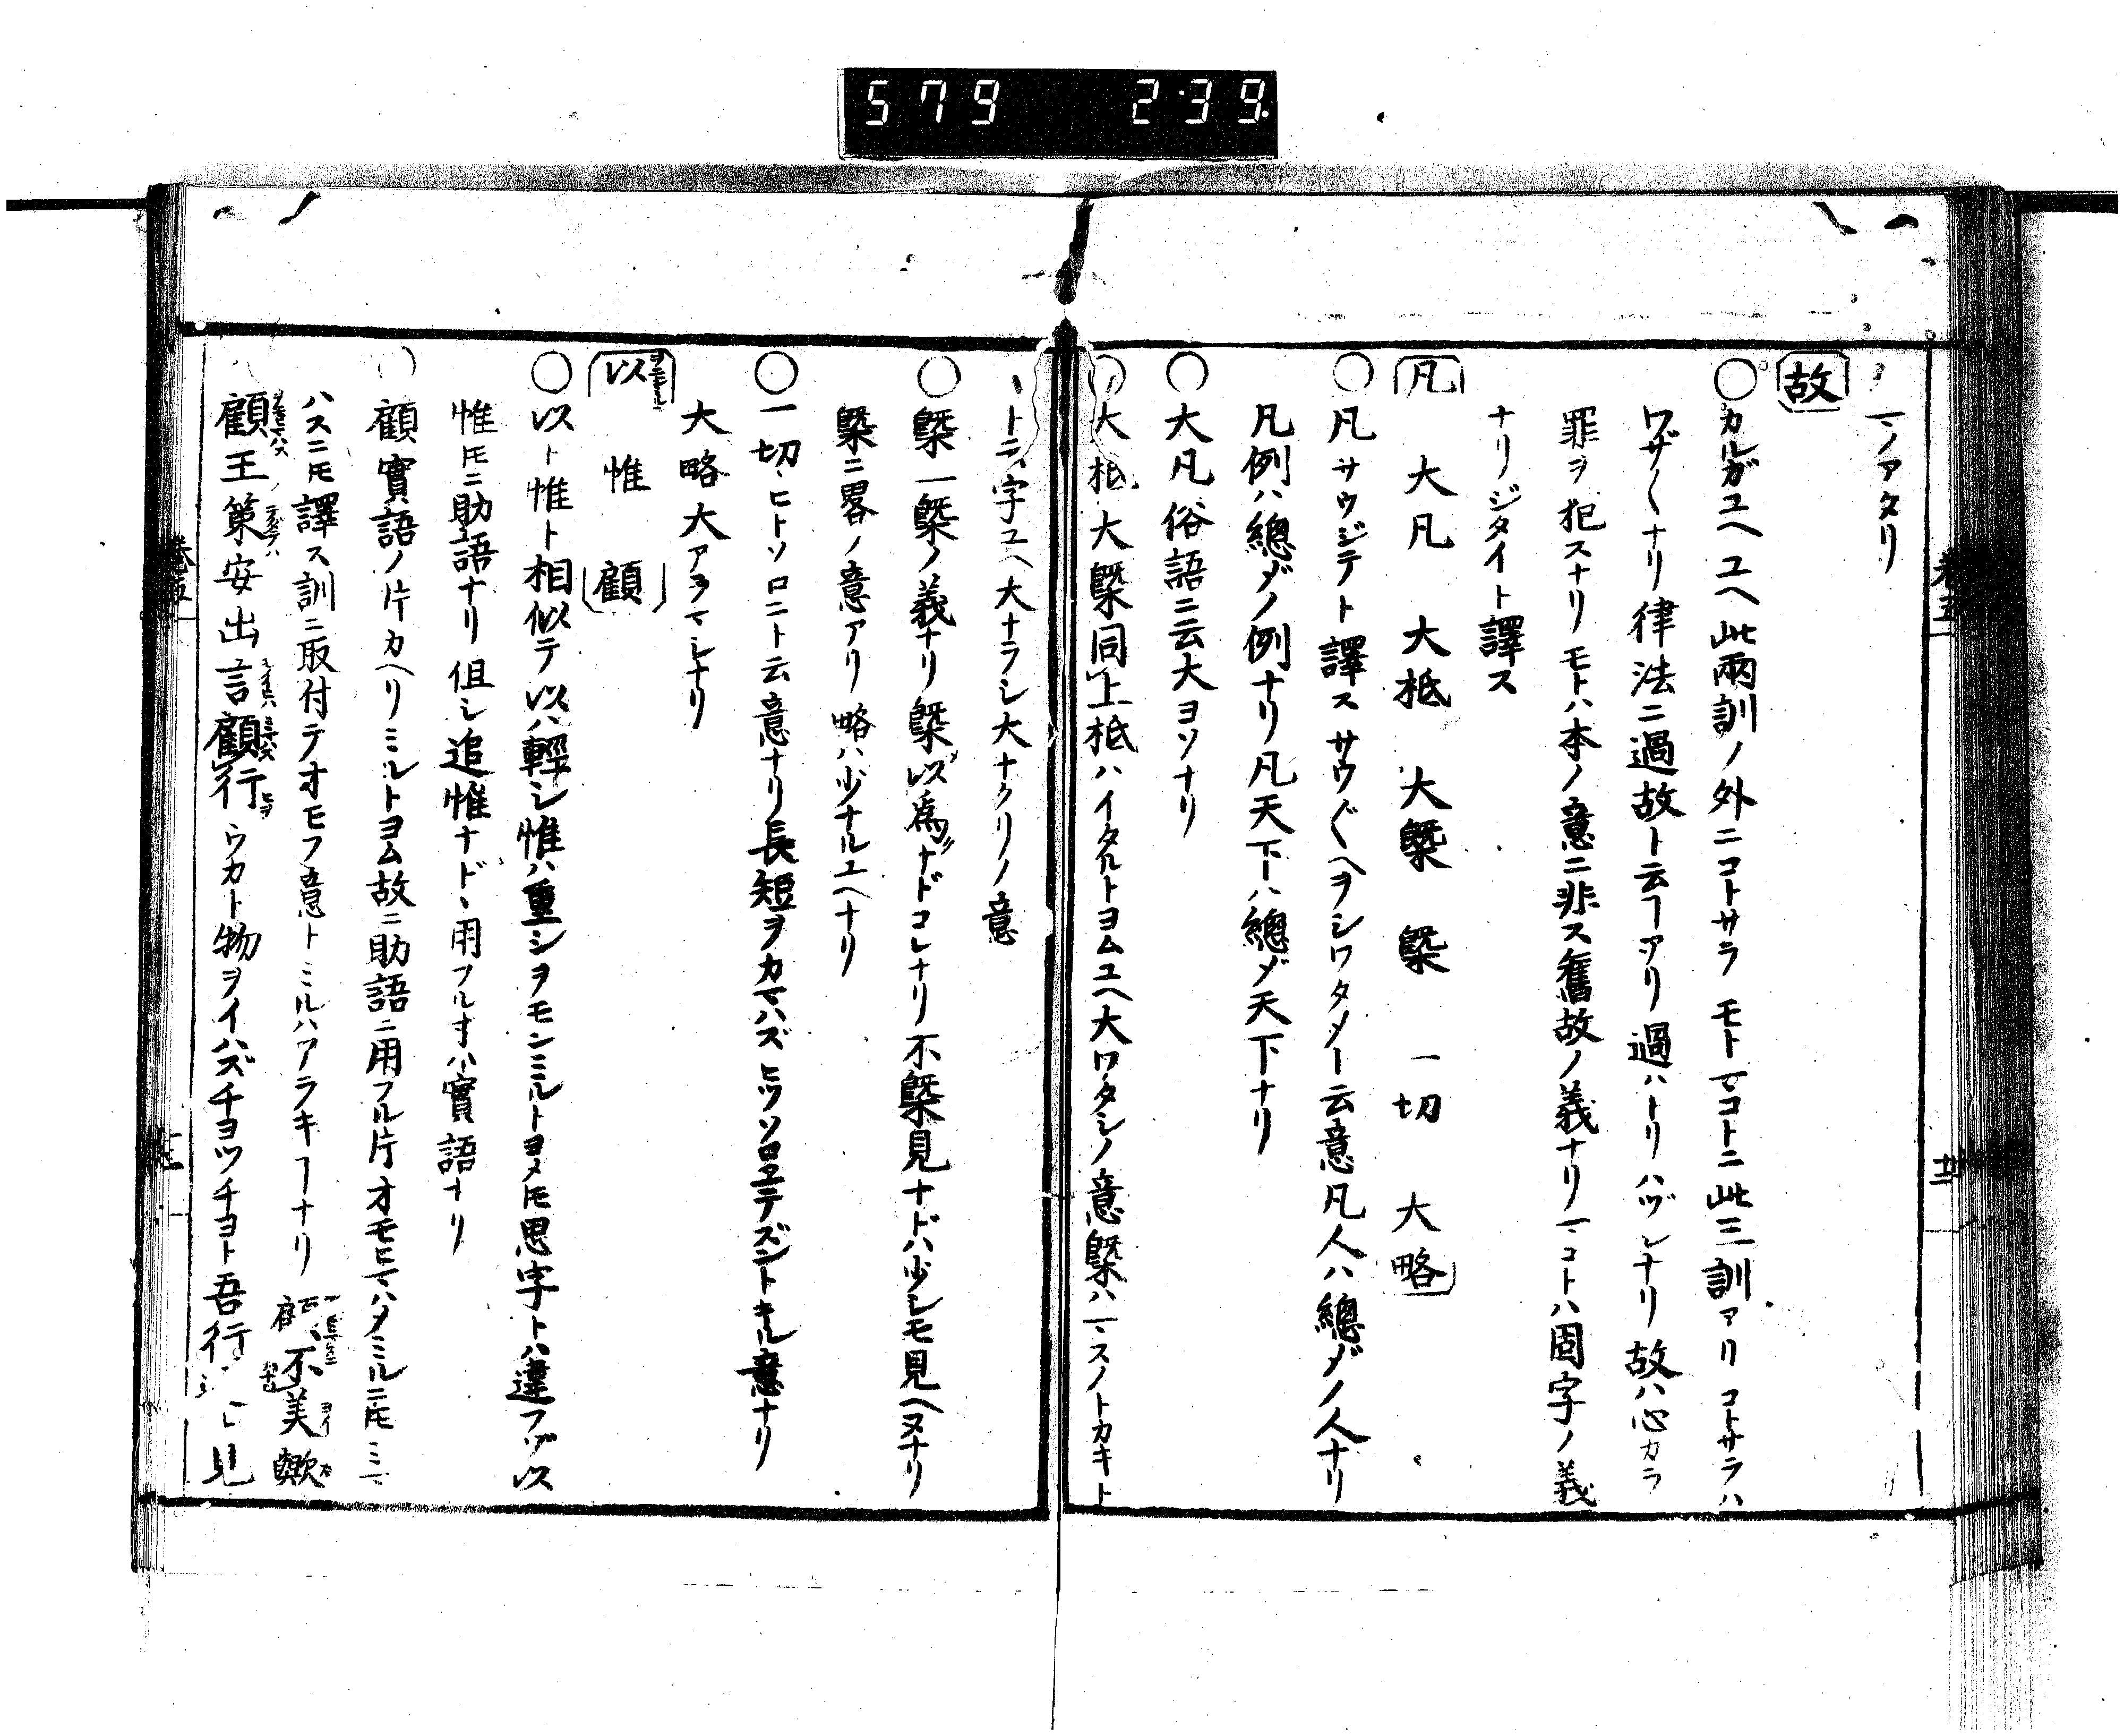 579 239
マノアタリ
故
○カルガユヘユヘ此兩訓ノ外ニコトサラモトマコトニ此三訓アリコトサラハ
ワザ〱ナリ律法ニ過故ト云ヿアリ過ハトリハヅレナリ故ハ心カラ
罪ヲ犯スナリモトハ本ノ意ニ非ス舊故ノ義ナリマコトハ固字ノ義
ナリジタイト譯ス
凡 大凡 大抵 大槩 槩 一切 大略
○凡サウジテト譯スサウ〲ヘヲシワタメ云意凡人ハ總ジノ人ナリ
凡例ハ總ジノ例ナリ凡天下ハ總ジ天下ナリ
○大凡俗語ニ云大ヨソナリ
○大抵大槩同上抵ハイタルトヨムユヘ大ワタシノ意槩ハマスノトカキト
云字ユヘ大ナラシ大ナクリノ意
○槩一槩ノ義ナリ槩以為ナドコレナリ不槩見ナドハ少シモ見ヘヌナリ
槩ニ畧ノ意アリ略ハ少ナルユヘナリ
○一切ヒトソロニト云意ナリ長短ヲカマハズヒツソロヱテズントキル意ナリ
大略大アラマシナリ
以 惟 顧
○以ト惟ト相似テ以ハ輕シ惟ハ重シヲモンミルトヨメ𪜈思字トハ違フゾ以
惟𪜈ニ助語ナリ但シ追惟ナド用フルオハ實語ナリ
○顧實語ノ片カヘリミルトヨム故ニ助語ニ用フル片オモヒマハメミルニ𪜈ミマ
ハスニ𪜈譯ス訓ニ取付テオモフ意トミルハアラキヿナリ顧不美歟
顧王策安出言顧行ウカト物ヲイハズチヨツチヨト吾行見
卷五
卷五 廿二